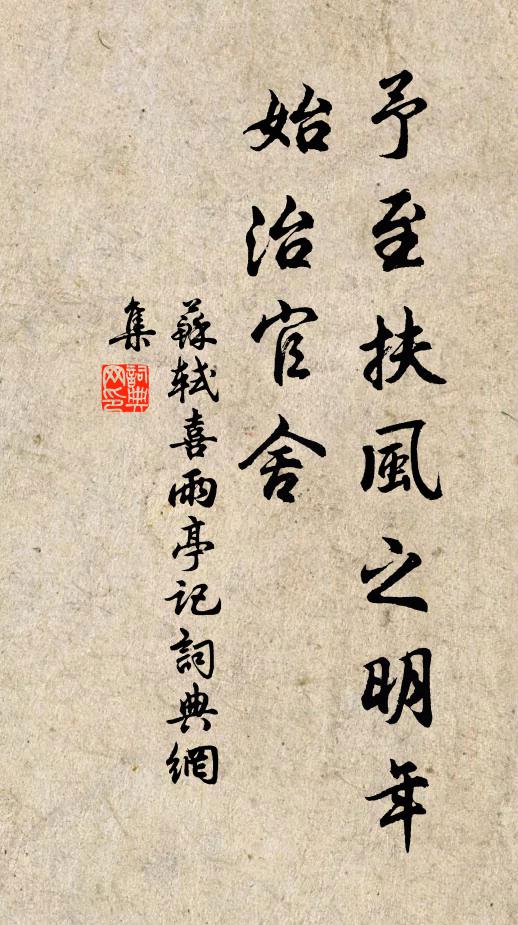 予至扶風之明年
始治官舍
蘇軾喜雨亭記詞典網
集
詞典
网印